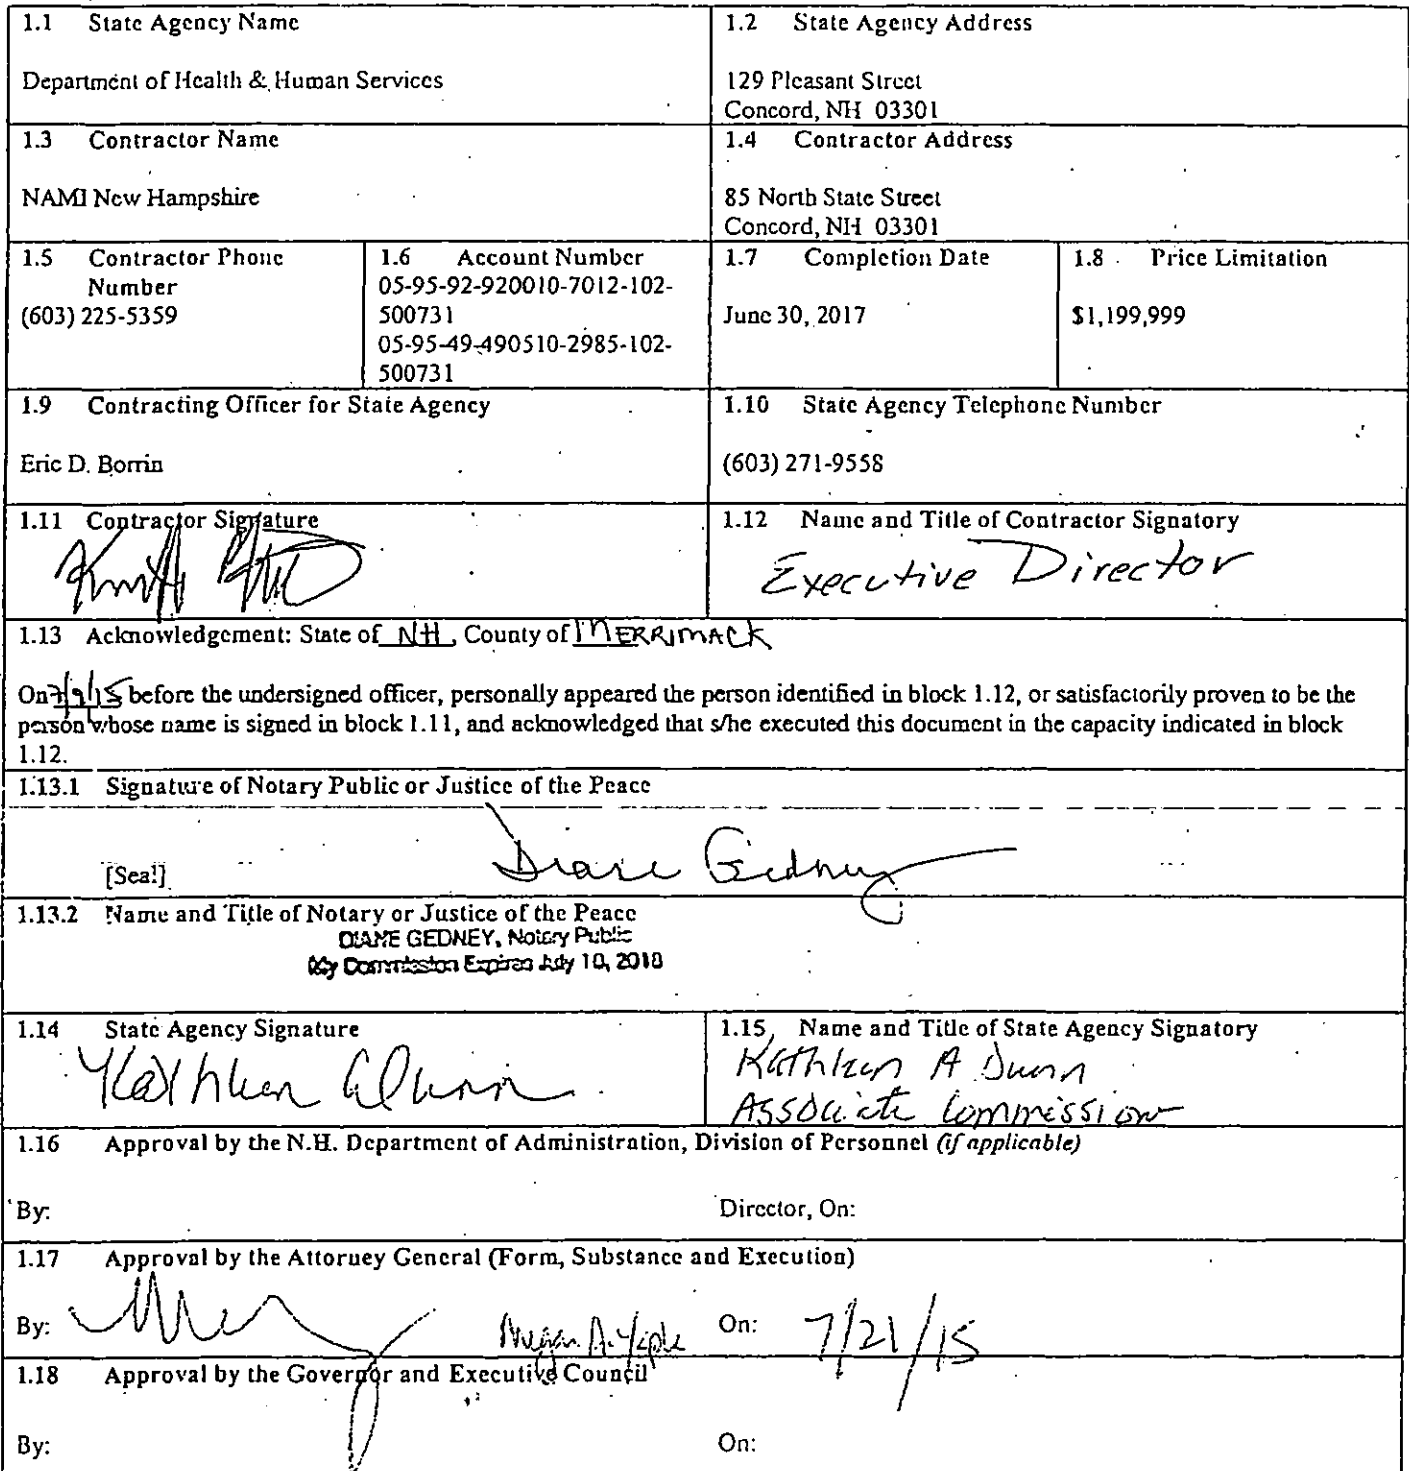 1.1 State Agency Name
1.2 State Agency Address
Department of Health & Human Services
129 Pleasant Street
Concord, NH 03301
1.3 Contractor Name
1.4 Contractor Address
NAMI New Hampshire
85 North State Street
Concord, NH 03301
1.5 Contractor Phone
Number
(603) 225-5359
1.6 Account Number
05-95-92-920010-7012-102-
500731
05-95-49-490510-2985-102-
500731
1.7 Completion Date
June 30, 2017
1.8 Price Limitation
$1,199,999
1.9 Contracting Officer for State Agency
1.10 State Agency Telephone Number
Eric D. Borrin
(603) 271-9558
1.11 Contractor Signature
1.12 Name and Title of Contractor Signatory
Executive Director
1.13 Acknowledgement: State of NH, County of MERRIMACK
On 7/9/15 before the undersigned officer, personally appeared the person identified in block 1.12, or satisfactorily proven to be the
person whose name is signed in block 1.11, and acknowledged that s/he executed this document in the capacity indicated in block
1.12.
1.13.1 Signature of Notary Public or Justice of the Peace
[Seal]
Diane Gedney
1.13.2 Name and Title of Notary or Justice of the Peace
DIANE GEDNEY, Notary Public
My Commission Expires July 10, 2018
1.14 State Agency Signature
Kathleen A Dunn
1.15 Name and Title of State Agency Signatory
Kathleen A Dunn
Associate Commission
1.16 Approval by the N.H. Department of Administration, Division of Personnel (if applicable)
By:
Director, On:
1.17 Approval by the Attorney General (Form, Substance and Execution)
By:
Megan A. Yaple
On: 7/21/15
1.18 Approval by the Governor and Executive Council
By:
On: